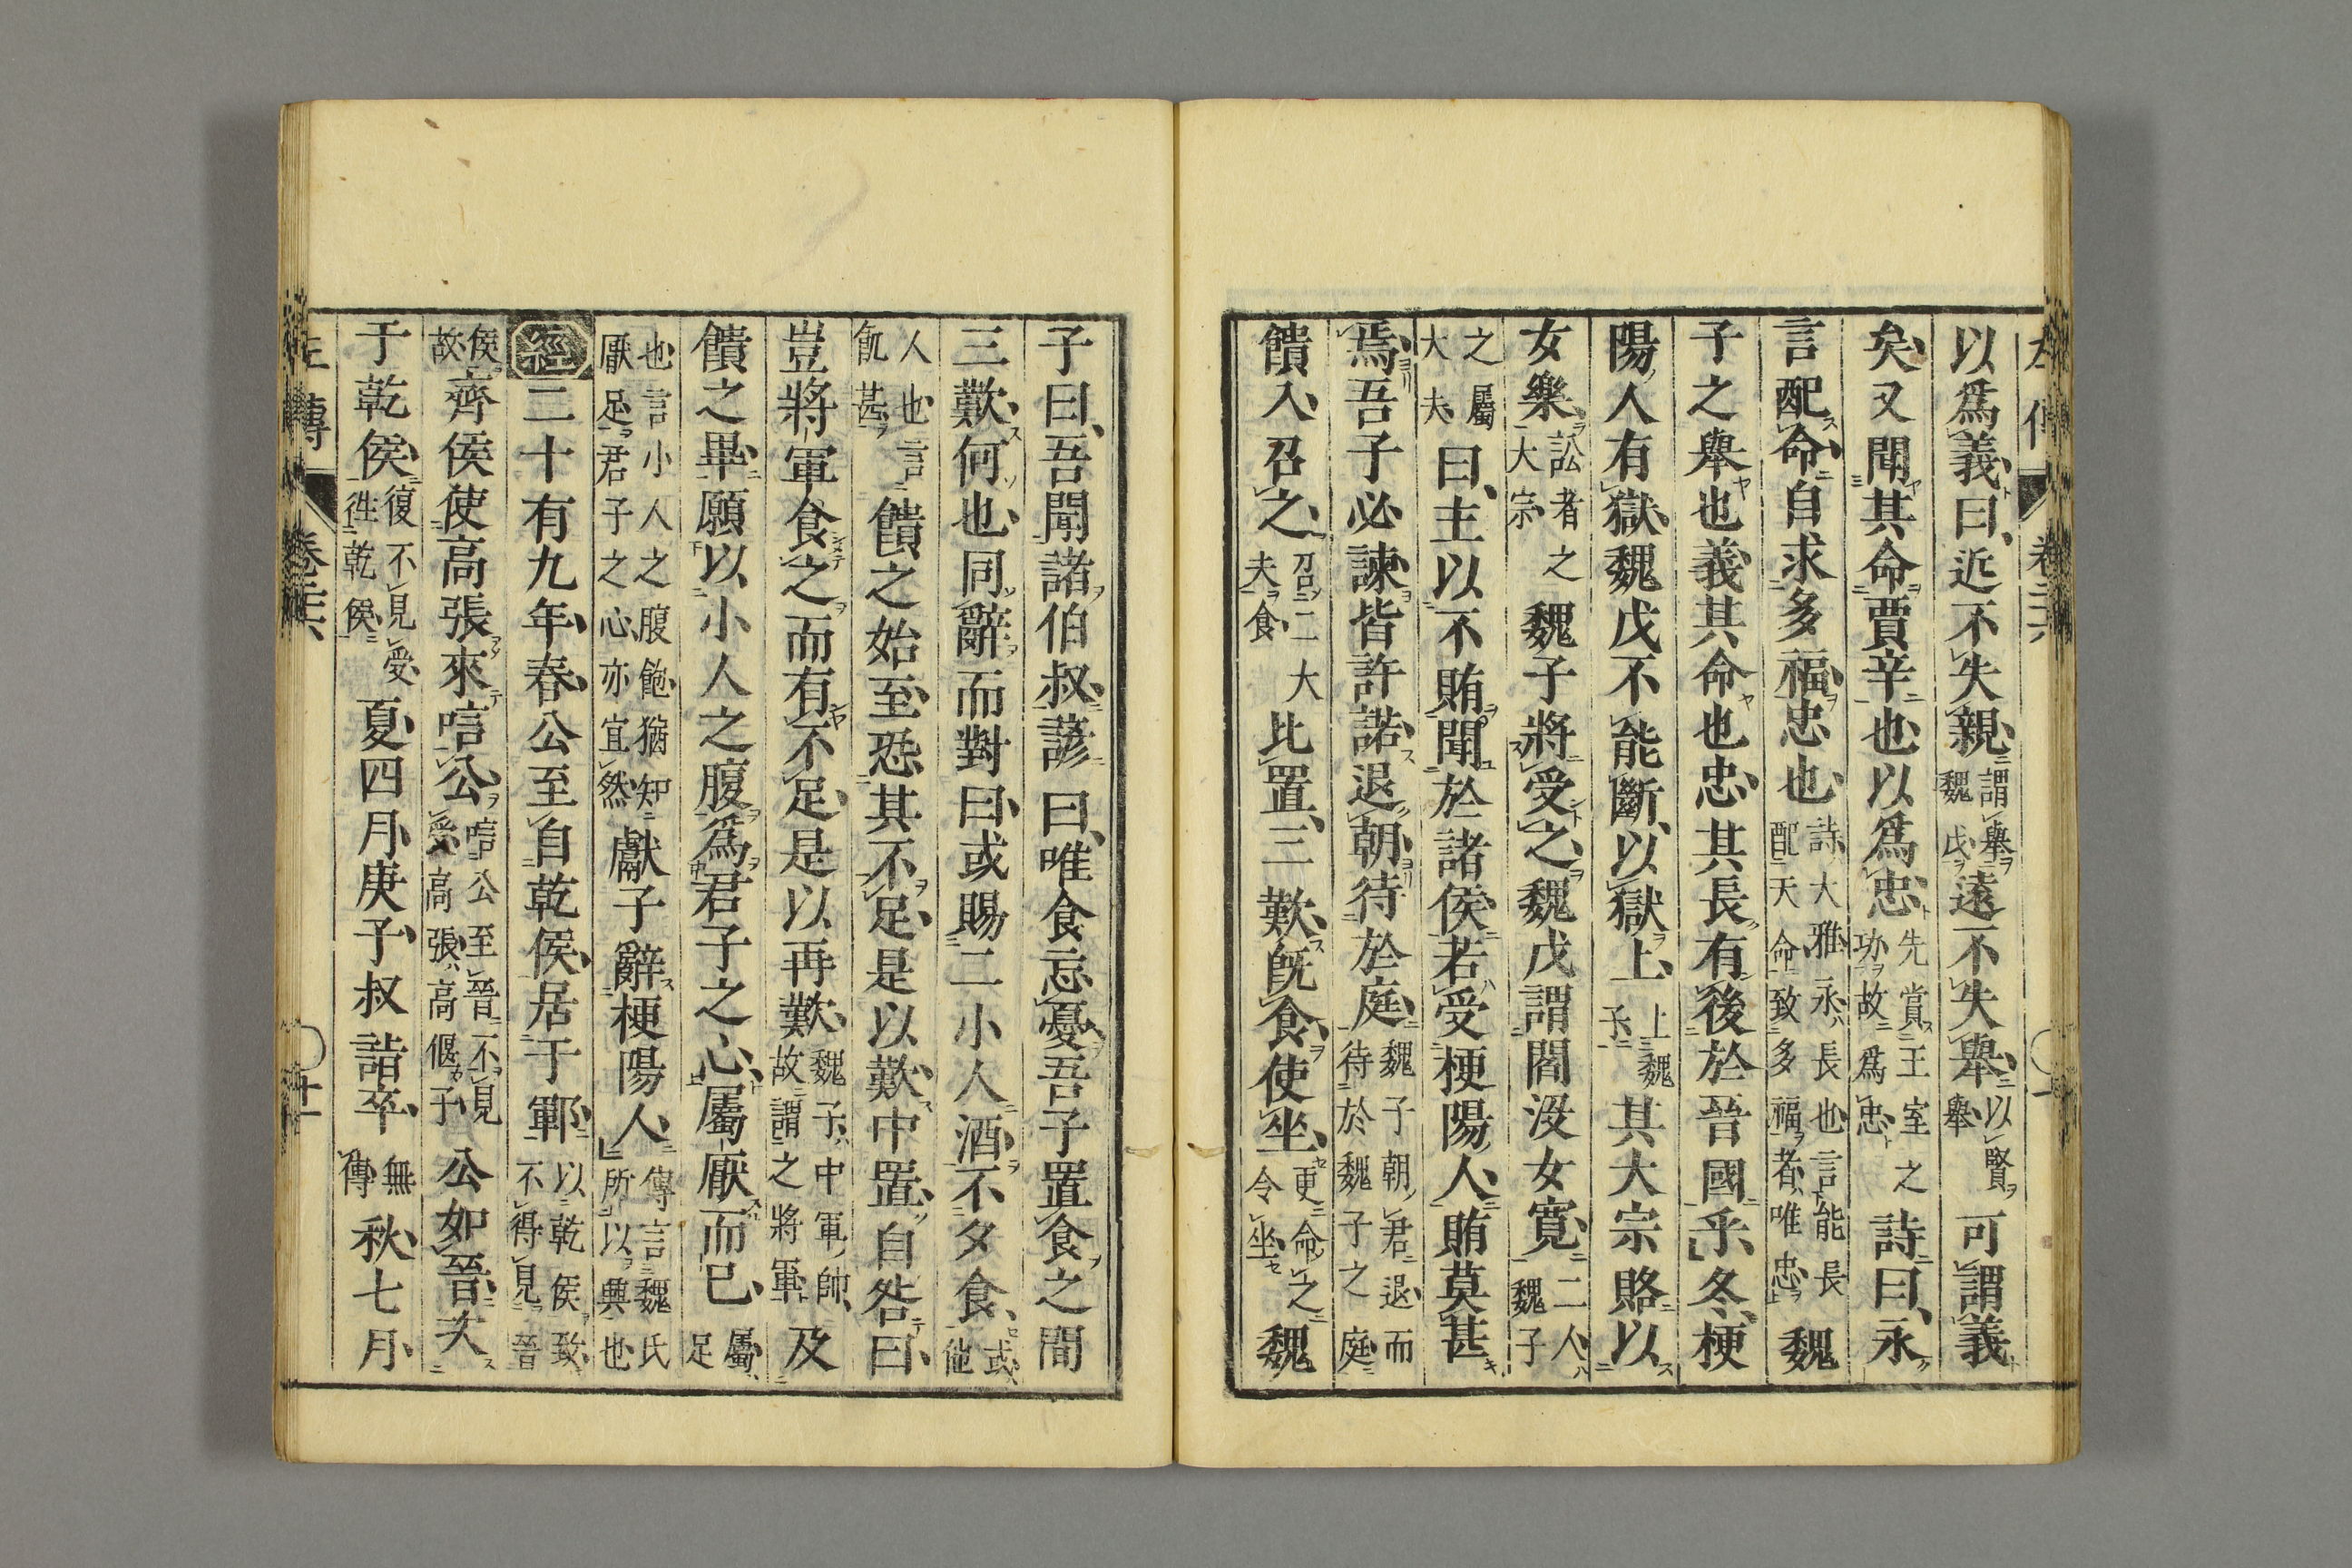 以爲義曰近不失親謂舉魏戊遠不失舉以賢舉可謂義
矣又聞其命賈辛也以爲忠先賞王室之功故爲忠詩曰永
言配命自求多福忠也詩大雅永長也言能長配天命致多福者唯忠魏
子之舉也義其命也忠其長有後於晉國乎冬梗
陽人有獄魏戊不能斷以獄上上魏子其大宗賂以
女樂訟者之大宗魏子將受之魏戊謂閻沒女寬二人魏子
之屬大夫曰主以不賄聞於諸侯若受梗陽人賄莫甚
焉吾子必諫皆許諾退朝待於庭魏子朝君退而待於魏子之庭
饋入召之召二大夫食比置三歎旣食使坐更命之令坐魏
子曰吾聞諸伯叔諺曰唯食忘憂吾子置食之間
三歎何也同辭而對曰或賜二小人酒不夕食或他
人也言飢甚饋之始至恐其不足是以歎中置自咎曰
豈將軍食之而有不足是以再歎魏子中軍帥故謂之將軍及
饋之畢願以小人之腹爲君子之心屬厭而已屬足
也言小人之腹飽猶知厭足君子之心亦宜然獻子辭梗陽人傳言魏氏所以興也
經二十有九年春公至自乾侯居于鄆以乾侯致不得見晉
侯故齊侯使高張來唁公唁公至晉不見受高張高偃子公如晉次
于乾侯復不見受往乾侯夏四月庚子叔詣卒無傳秋七月
左傳
卷二十六
十一